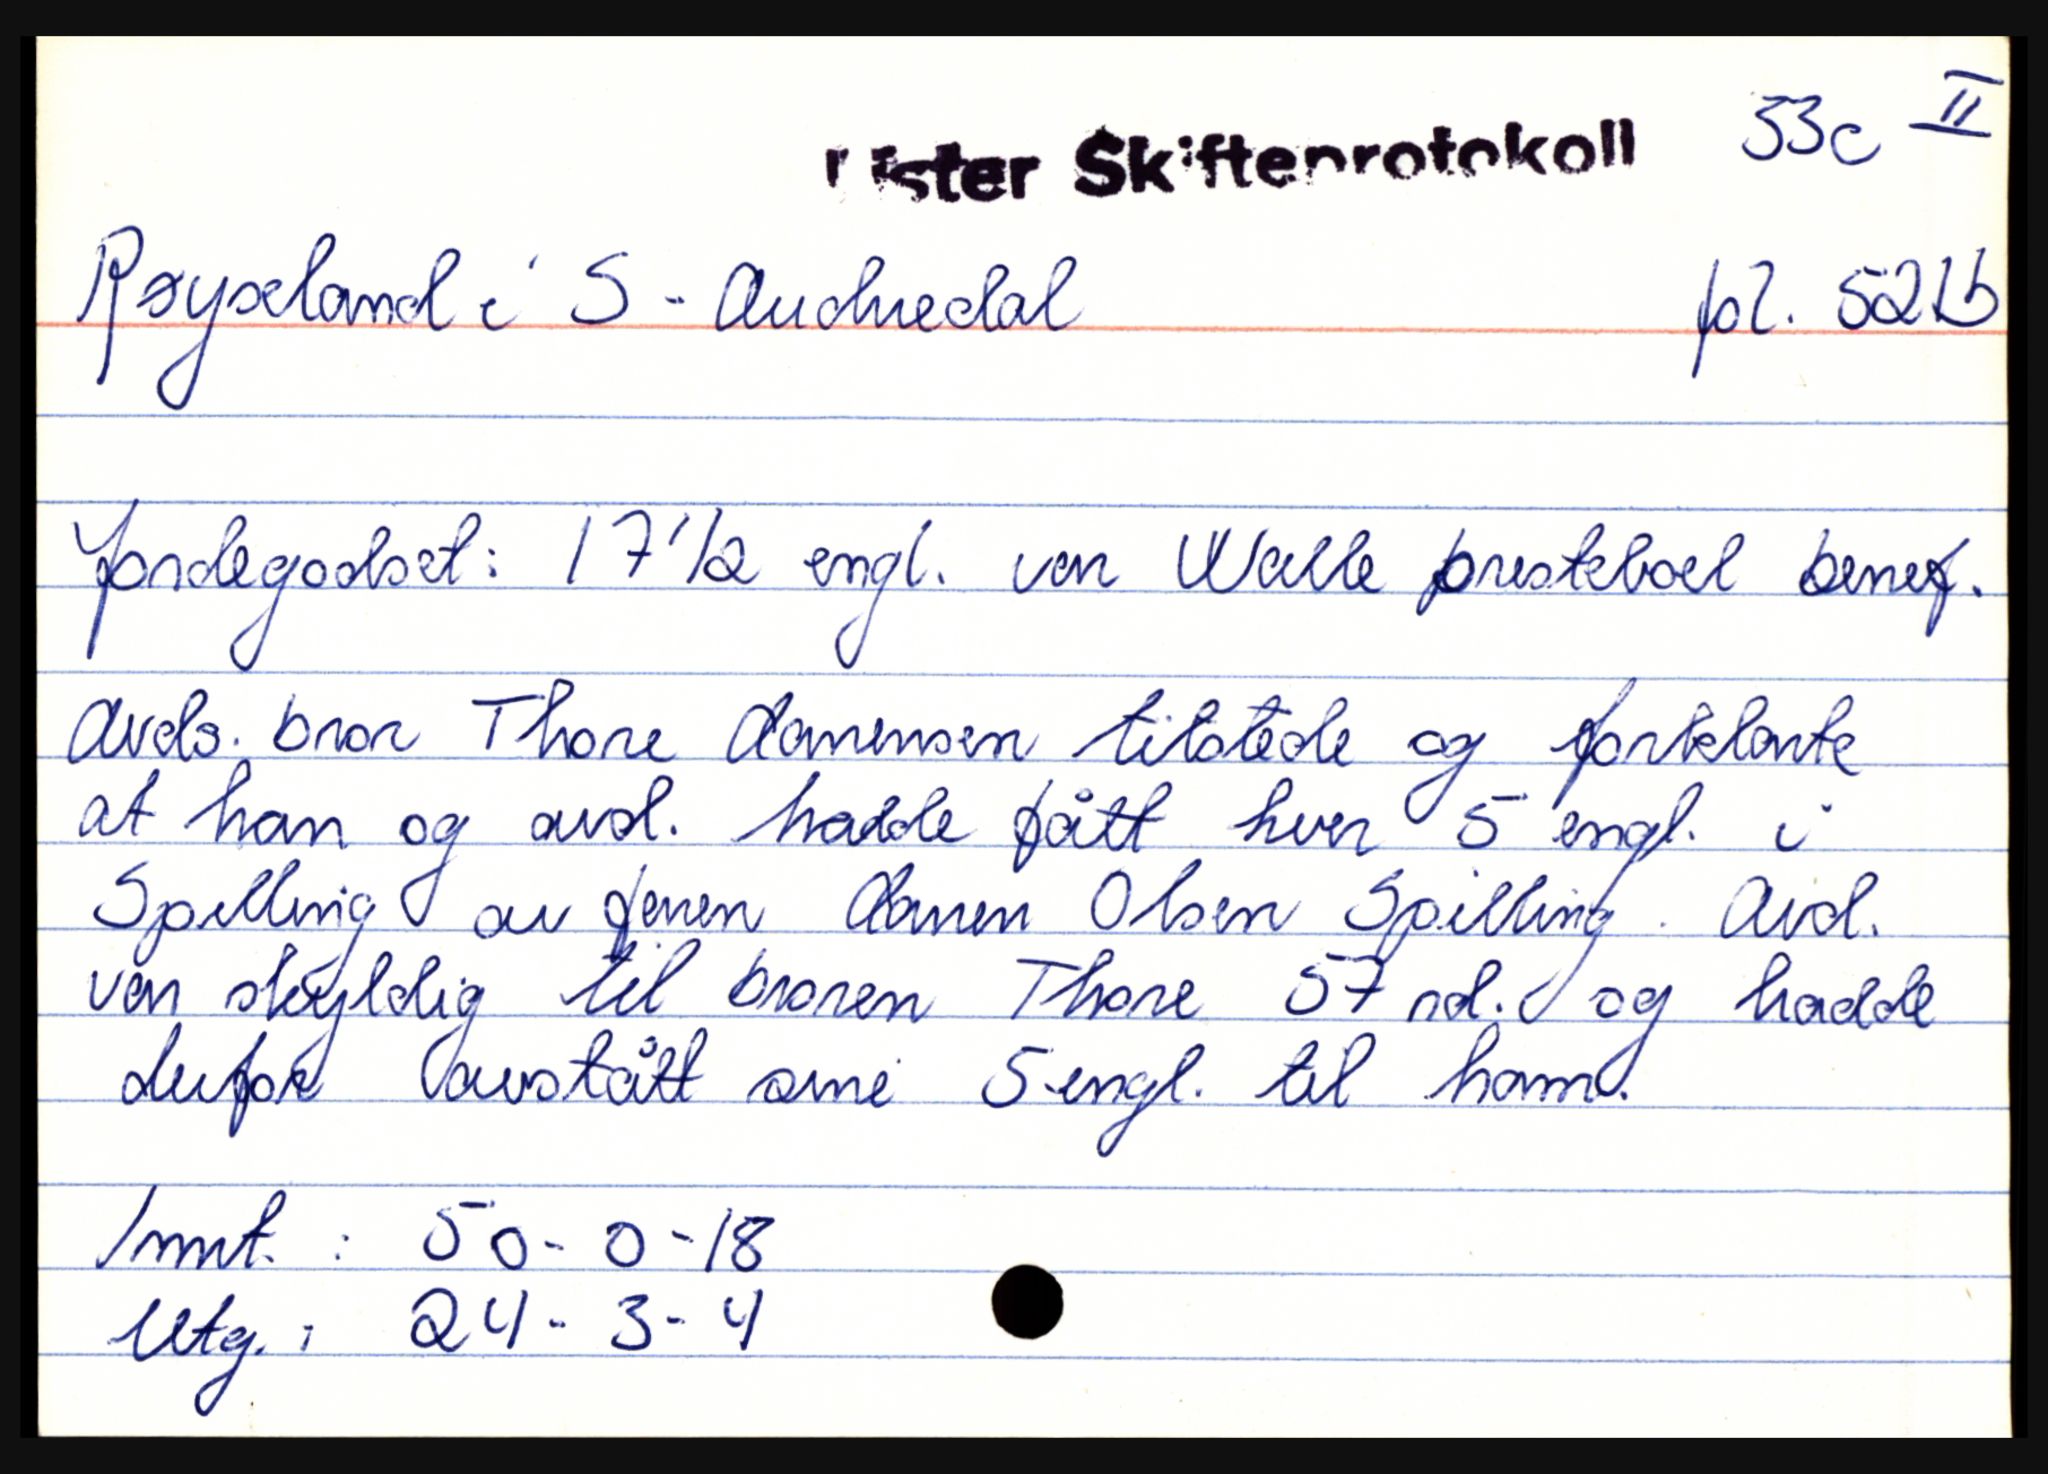 33c II
Lister Skifteprotokoll
Røyseland i S-Audnedal fol. 521b
Jordegodset: 17 1/2 engl. var Walle presteboel benef.
Avds. bror Thore Aanensen tilstede og forklarte
at han og avd. hadde fått hver 5 engl. i
Spilling av faren Aanen Olsen Spilling. Avd.
var skyldig til broren Thore 57 rd. og hadde
derfor avstått sine 5 engl. til ham.
Innt. : 50-0-18
Utg. : 24-3-4